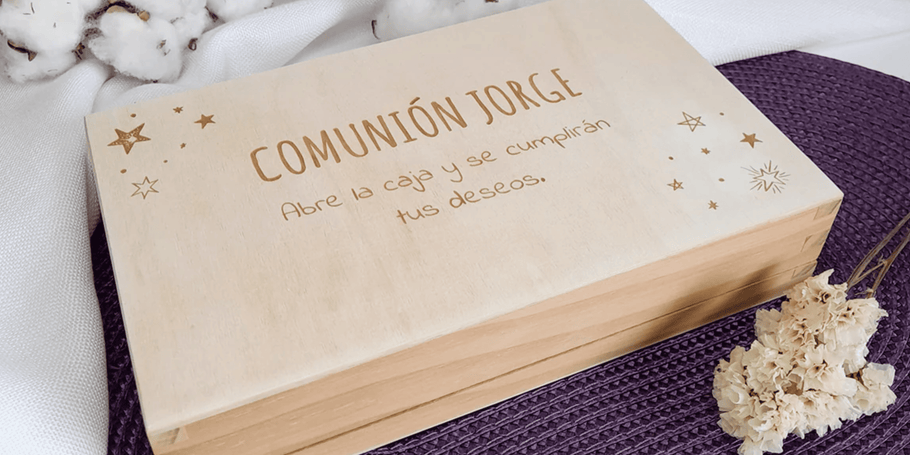 COMUNIÓN JORGE
Abre la caja y se cumplirán
tus deseos.